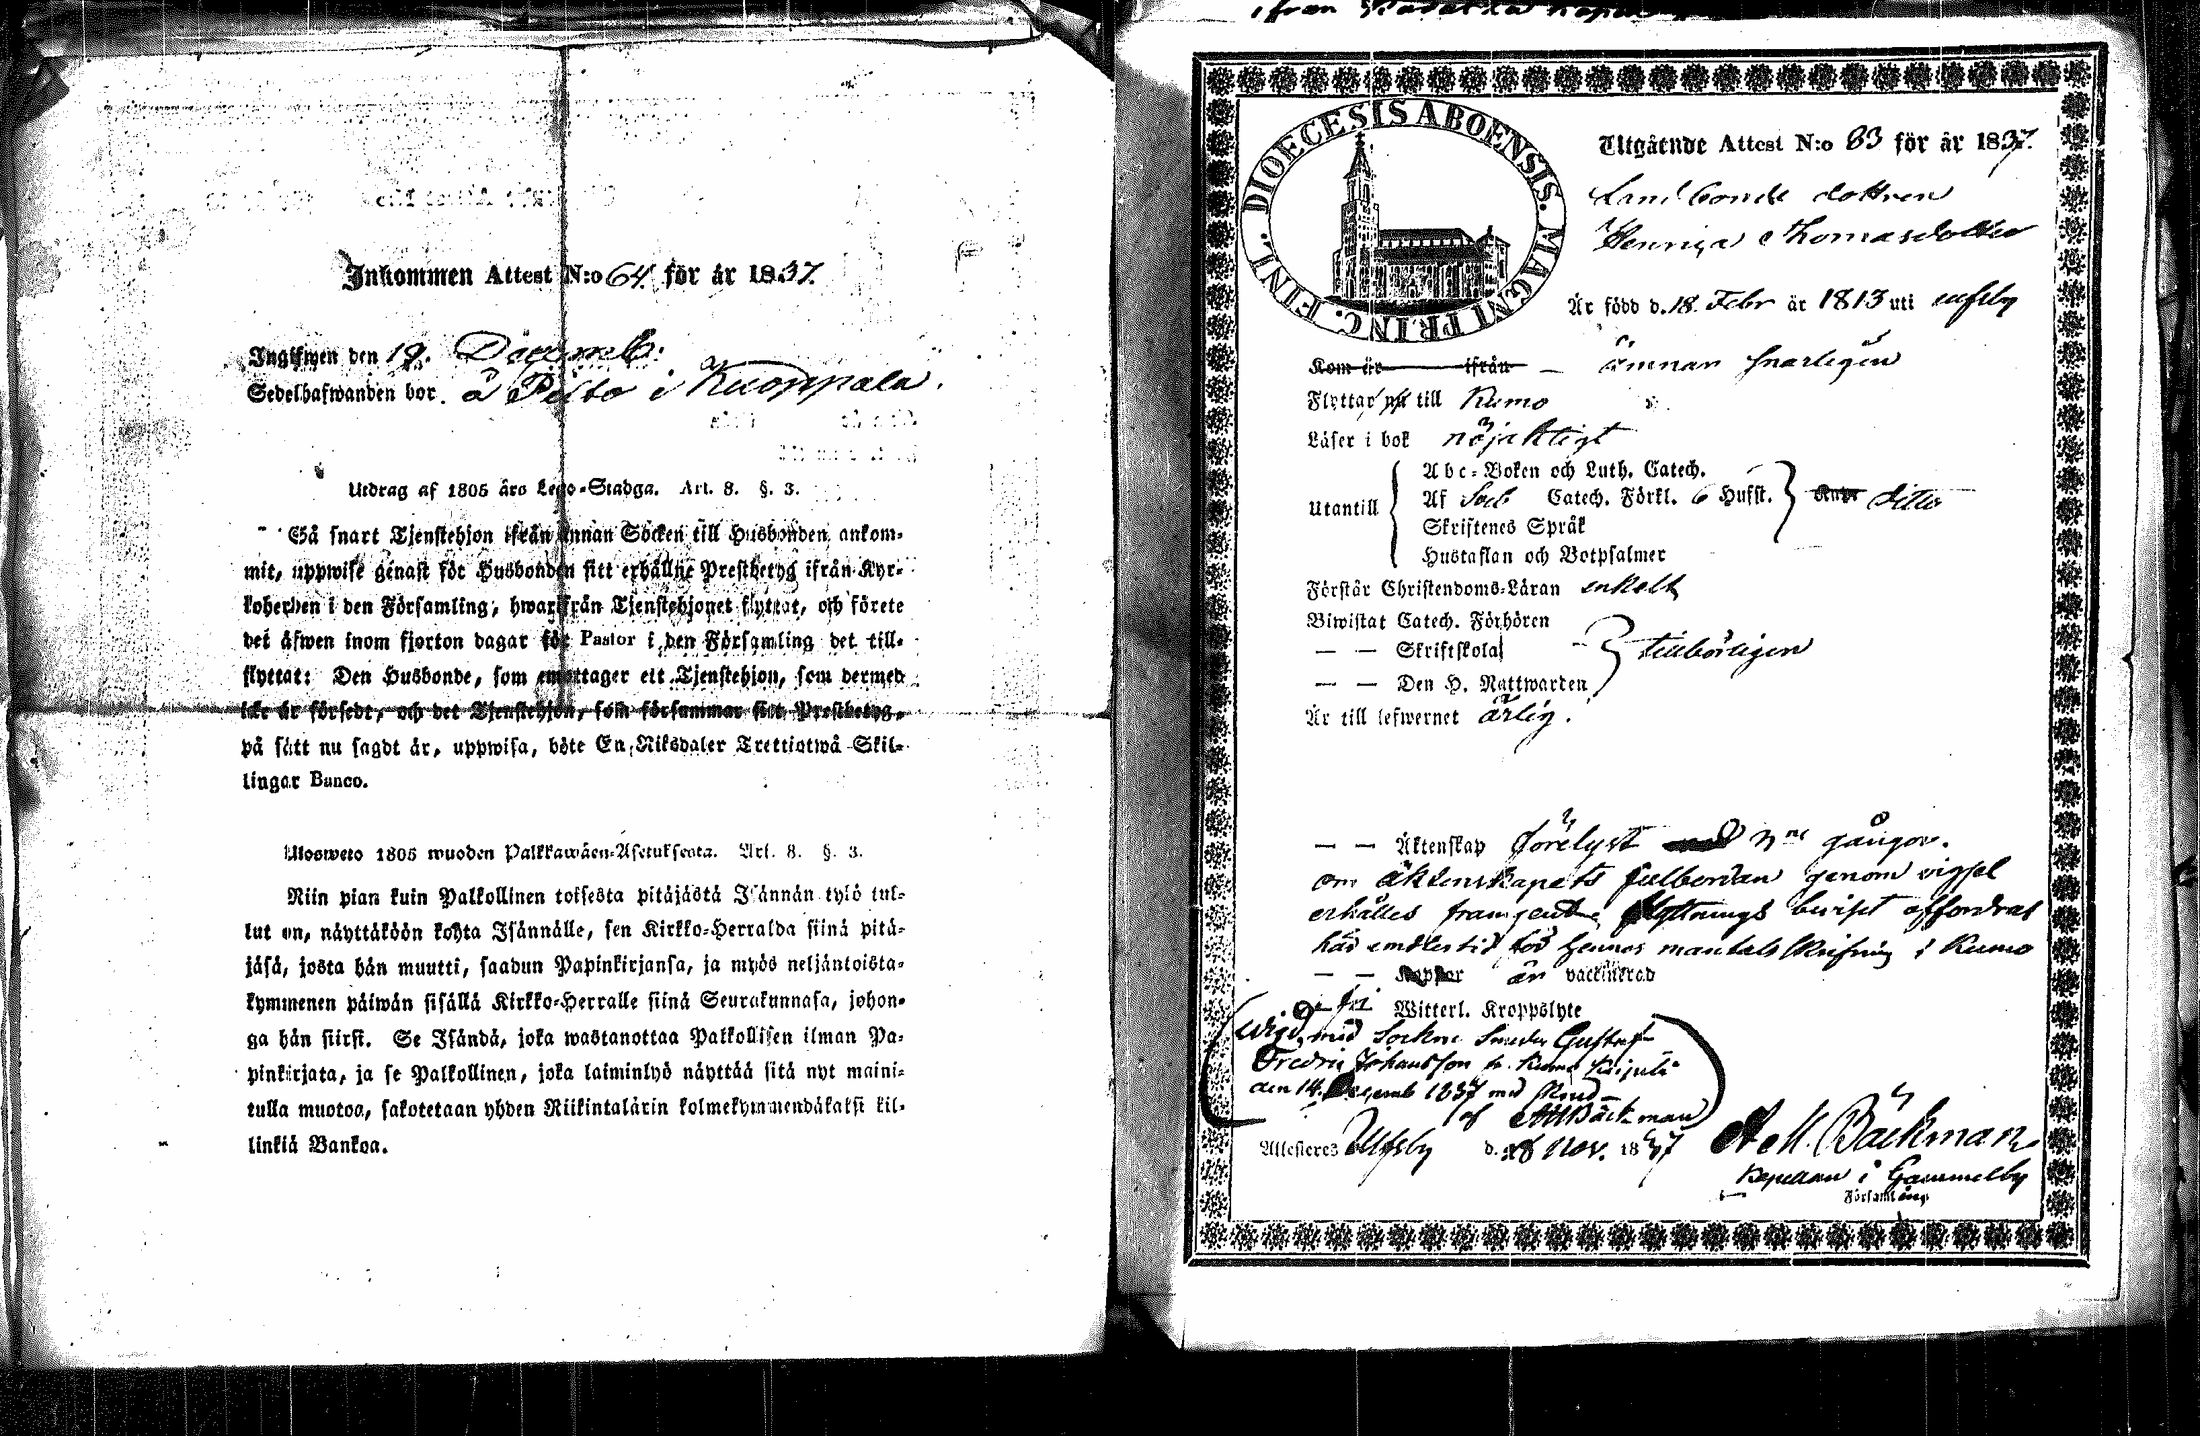 Inkommen Attest N:o 64. för år 1837.
Ingifwen den 19. Decemb:
Sedelhafwanden bor å Pelto i Kuoppala.
Utdrag af 1805 års Lego-Stadga. Art. 8. §. 3.
Så snart Tjenstehjon ifrån annan Socken till Husbonden ankom-
mit, uppwise genast för Husbonden sitt erhållne Prestbetyg ifrån Kyr-
koherden i den Församling, hwarifrån Tjenstehjonet flyttat, och förete
det äfwen inom fjorton dagar för Pastor i den Församling det till-
flyttat: Den Husbonde, som emottager ett Tjenstehjon, som dermed
icke är försedt, och det Tjenstehjon, som försummar sitt Prestbetyg,
på sätt nu sagdt är, uppwisa, böte En Riksdaler Trettiotwå Skil-
lingar Banco.
Ulosweto 1805 wuoden Palkkawäen-Asetuksesta. Art. 8. §. 3.
Niin pian kuin Palkollinen toisesta pitäjästä Isännän tykö tul-
lut on, näyttäköön kohta Isännälle, sen Kirkko-Herralda siinä pitä-
jäsä, josta hän muutti, saadun Papinkirjansa, ja myös neljäntoista-
kymmenen päiwän sisällä Kirkko-Herralle siinä Seurakunnasa, johon-
ga hän siirsi. Se Isändä, joka wastanottaa Palkollisen ilman Pa-
pinkirjata, ja se Palkollinen, joka laiminlyö näyttää sitä nyt maini-
tulla muotoa, sakotetaan yhden Riikintalärin kolmekymmendäkaksi kil-
linkiä Bankoa.
ifrån
DIOECESIS ABOENSIS. MAGNI PRINC. FINL.
Utgående Attest N:o 83 för år 1837.
Landbonde dottren
Henrica Thomasdotter
Är född d. 18. Febr år 1813 uti Ulfsby
Kom år ifrån — ämnar snarligen
Flyttar nu till Kumo
Läser i bok nöjaktigt
Utantill
Abc-Boken och Luth. Catech.
Af Catech. Förkl. 6 Hufst. ditto
Skriftenes Språk
Hustaflan och Botpsalmer
Förstår Christendoms-Läran enkelt
Biwistat Catech. Förhören
— — Skriftskola tillbörligen
— — Den H. Nattwarden
Är till lefwernet ärlig.
— — Äktenskap förelyst gångor.
om äktenskapets fullbordan genom vigsel
erhålles framgent flyttnings beviset affordras
här emedlertid för hennes mantals skrifning i Kumo
— — Koppor är vaccinerad
— fri Witterl. Kroppslyte
Wigd med Sockne Smeden Gustaf
Fredric Johansson fr. Kumo
den 14. Decemb 1837
af AM Bäckman
Attesteres Ulfsby d. 28 Nov. 1837 A M. Bäckman
Kapellan i Gammelby
Församling